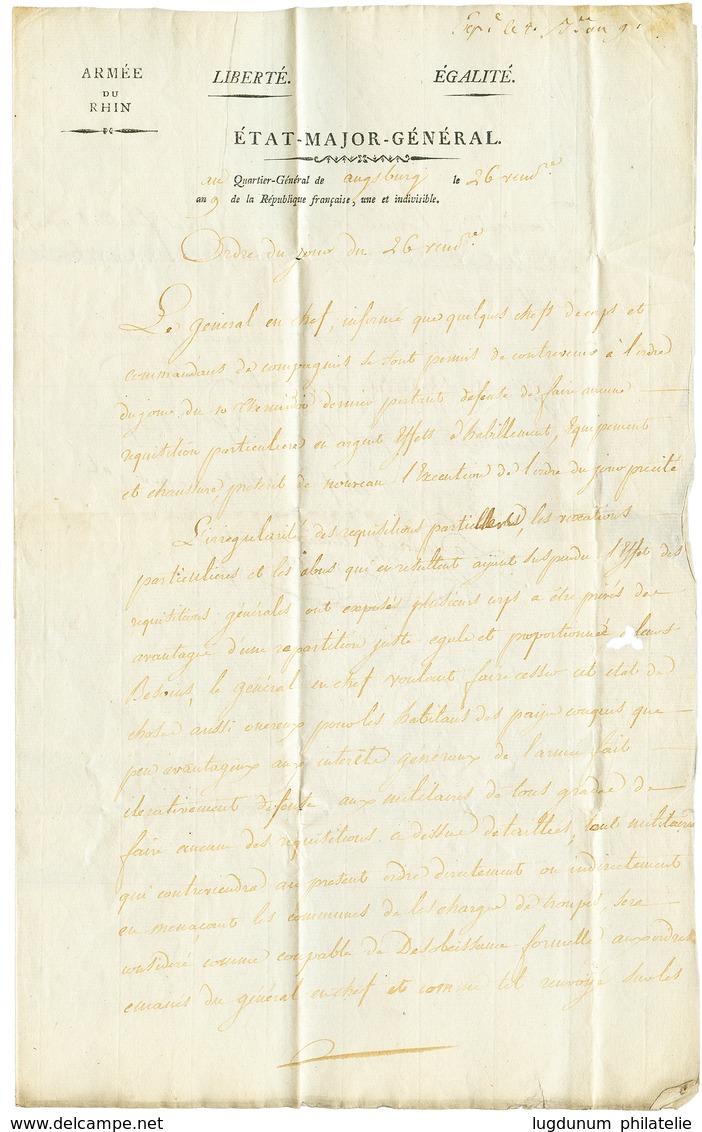 Exp.é le 4
an 9
ARMÉE
DU
RHIN
LIBERTÉ.
ÉGALITÉ.
ÉTAT-MAJOR-GÉNÉRAL.
au Quartier-Général de augsburg le 26 vend.re
an 9 de la République française, une et indivisible.
Ordre du jour du 26 vend.re
Le général en chef, informé que quelques chefs de corps et
commandans de compagnies se sont permis de contrevenir à l'ordre
du jour du 10 thermidor dernier portant defense de faire aucune
requisition particuliere en argent Effets d'habillement, Equipement
et chaussure, prescrit de nouveau l'Execution de l'ordre du jour précité
L'irregularité des requisitions particulieres, les vexations
particulieres et les abus qui en resultent ayant suspendu l'Effet des
requisitions générales ont exposés plusieurs corps a être privés de
avantagé d'une repartition juste egale et proportionnée a leurs
Besoins, le général en chef voulant faire cesser cet etat de
chose aussi onereux pour les habitans des pays conquis que
peu avantageux aux interêts généraux de l'armée, fait
iterativement défense aux militaires de tous grades de
faire aucune des requisitions ci dessus detaillées, tout militaire
qui contreviendra au présent ordre directement ou indirectement
en menaçant les communes de les charger de troupes, sera
consideré comme coupable de Desobeissance formelle aux ordres
emanés du général en chef et comme tel renvoyé sur les
lugdunum philatelie